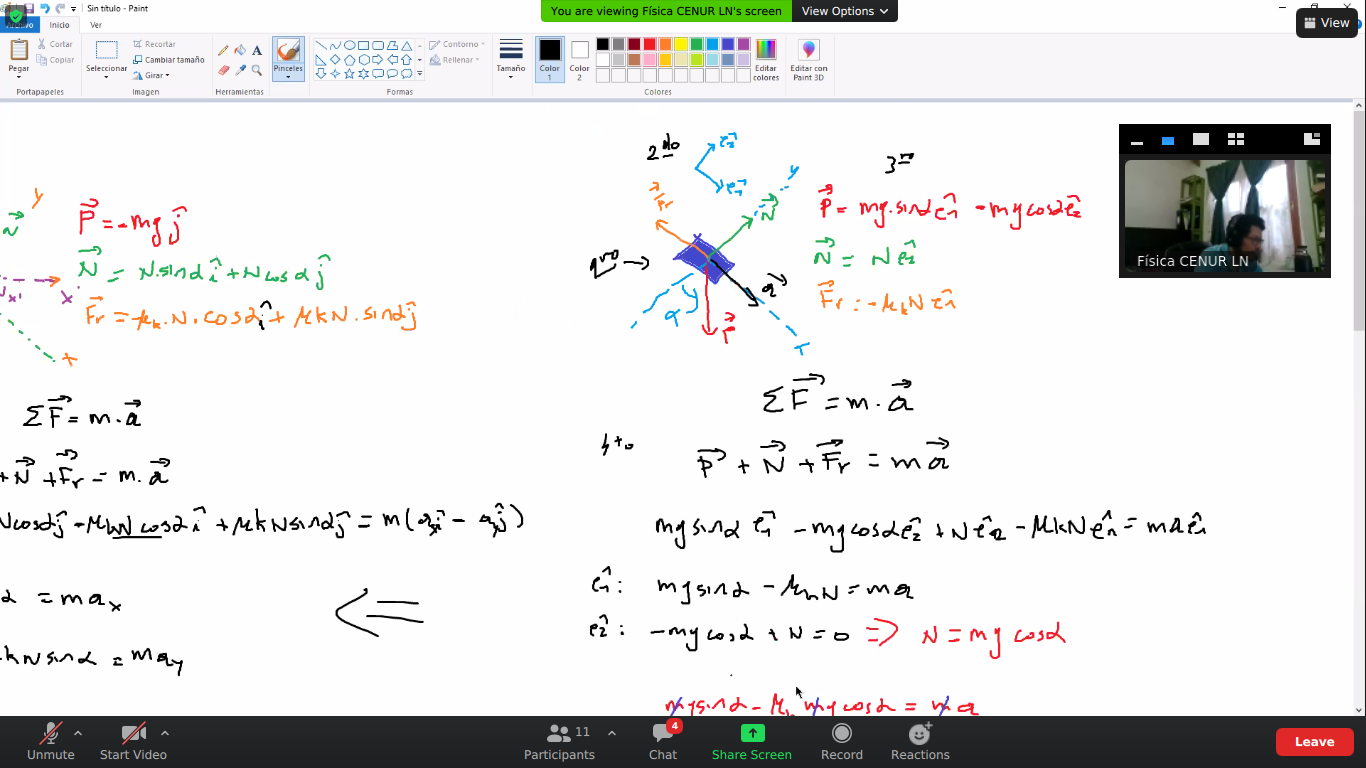 Sin título - Paint
You are viewing Física CENUR LN's screen
View Options
View
Archivo
Inicio
Ver
Pegar
Cortar
Copiar
Portapapeles
Seleccionar
Recortar
Cambiar tamaño
Girar
Imagen
Herramientas
Pinceles
Formas
Contorno
Rellenar
Tamaño
Color 1
Color 2
Editar colores
Editar con Paint 3D
Colores
y
N⃗
x'
x
P⃗ = -mg ĵ
N⃗ = N.sinα î + N cos α ĵ
F⃗r = -μk.N.cosα î + μkN.sinα ĵ
ΣF⃗ = m.a⃗
+ N⃗ + F⃗r = m.a⃗
Ncosαĵ - μkN cosα î + μkNsinα ĵ = m(axî - ayĵ)
α = max
kNsinα = may
2do
ê2
ê1
y
F⃗r
N⃗
1ro
a⃗
α
P⃗
3ro
P⃗ = mg.sinα ê1 - mgcosα ê2
N⃗ = N ê2
F⃗r = -μkN ê1
ΣF⃗ = m.a⃗
4to
P⃗ + N⃗ + F⃗r = ma⃗
mgsinα ê1 - mgcosα ê2 + N ê2 - μkN ê1 = ma ê1
ê1: mgsinα - μkN = ma
ê2: -mgcosα + N = 0 => N = mg cosα
mgsinα - μk mgcosα = ma
Física CENUR LN
Unmute
Start Video
Participants
11
Chat
4
Share Screen
Record
Reactions
Leave